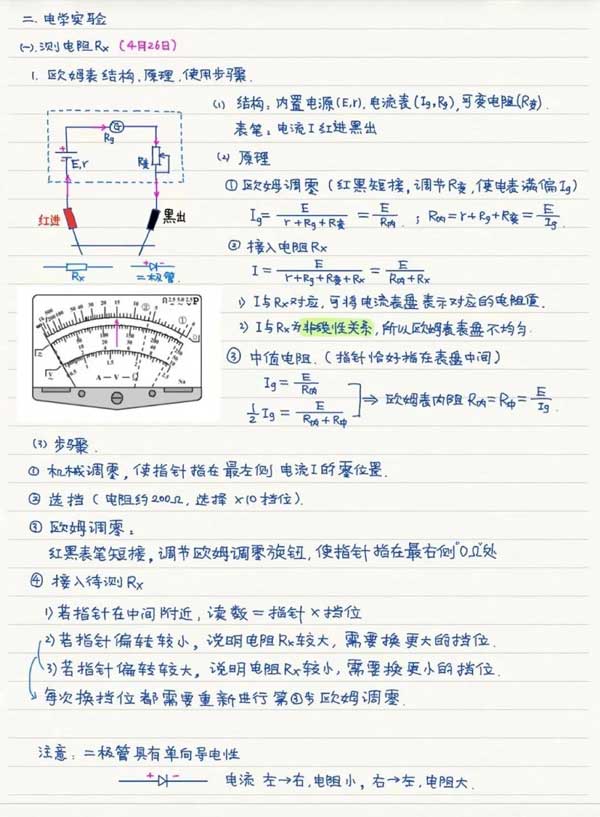 二. 电学实验
(一). 测电阻Rx (4月26日)
1. 欧姆表结构. 原理. 使用步骤.
(1) 结构: 内置电源(E,r), 电流表(Ig,Rg), 可变电阻(R变).
表笔: 电流I红进黑出
G
Rg
E,r
R变
红进
黑出
Rx
+ -
二极管
(2) 原理
① 欧姆调零 (红黑短接, 调节R变, 使电表满偏Ig)
Ig = E/(r+Rg+R变) = E/R内. ; R内=r+Rg+R变=E/Ig.
② 接入电阻Rx
I = E/(r+Rg+R变+Rx) = E/(R内+Rx)
1) I与Rx对应, 可将电流表盘表示对应的电阻值.
2) I与Rx为非线性关系, 所以欧姆表表盘不均匀.
③ 中值电阻. (指针恰好指在表盘中间)
Ig = E/R内
½Ig = E/(R内+R中)
⇒ 欧姆表内阻 R内=R中=E/Ig.
A—V—Ω
(3) 步骤.
① 机械调零, 使指针指在最左侧电流I的零位置.
② 选挡 (电阻约200Ω, 选择×10挡位).
③ 欧姆调零:
红黑表笔短接, 调节欧姆调零旋钮, 使指针指在最右侧"0Ω"处
④ 接入待测Rx
1) 若指针在中间附近, 读数=指针×挡位
2) 若指针偏转较小, 说明电阻Rx较大, 需要换更大的挡位.
3) 若指针偏转较大, 说明电阻Rx较小, 需要换更小的挡位.
每次换挡位都需要重新进行第③步欧姆调零.
注意: 二极管具有单向导电性
+ - 电流 左→右, 电阻小, 右→左, 电阻大.